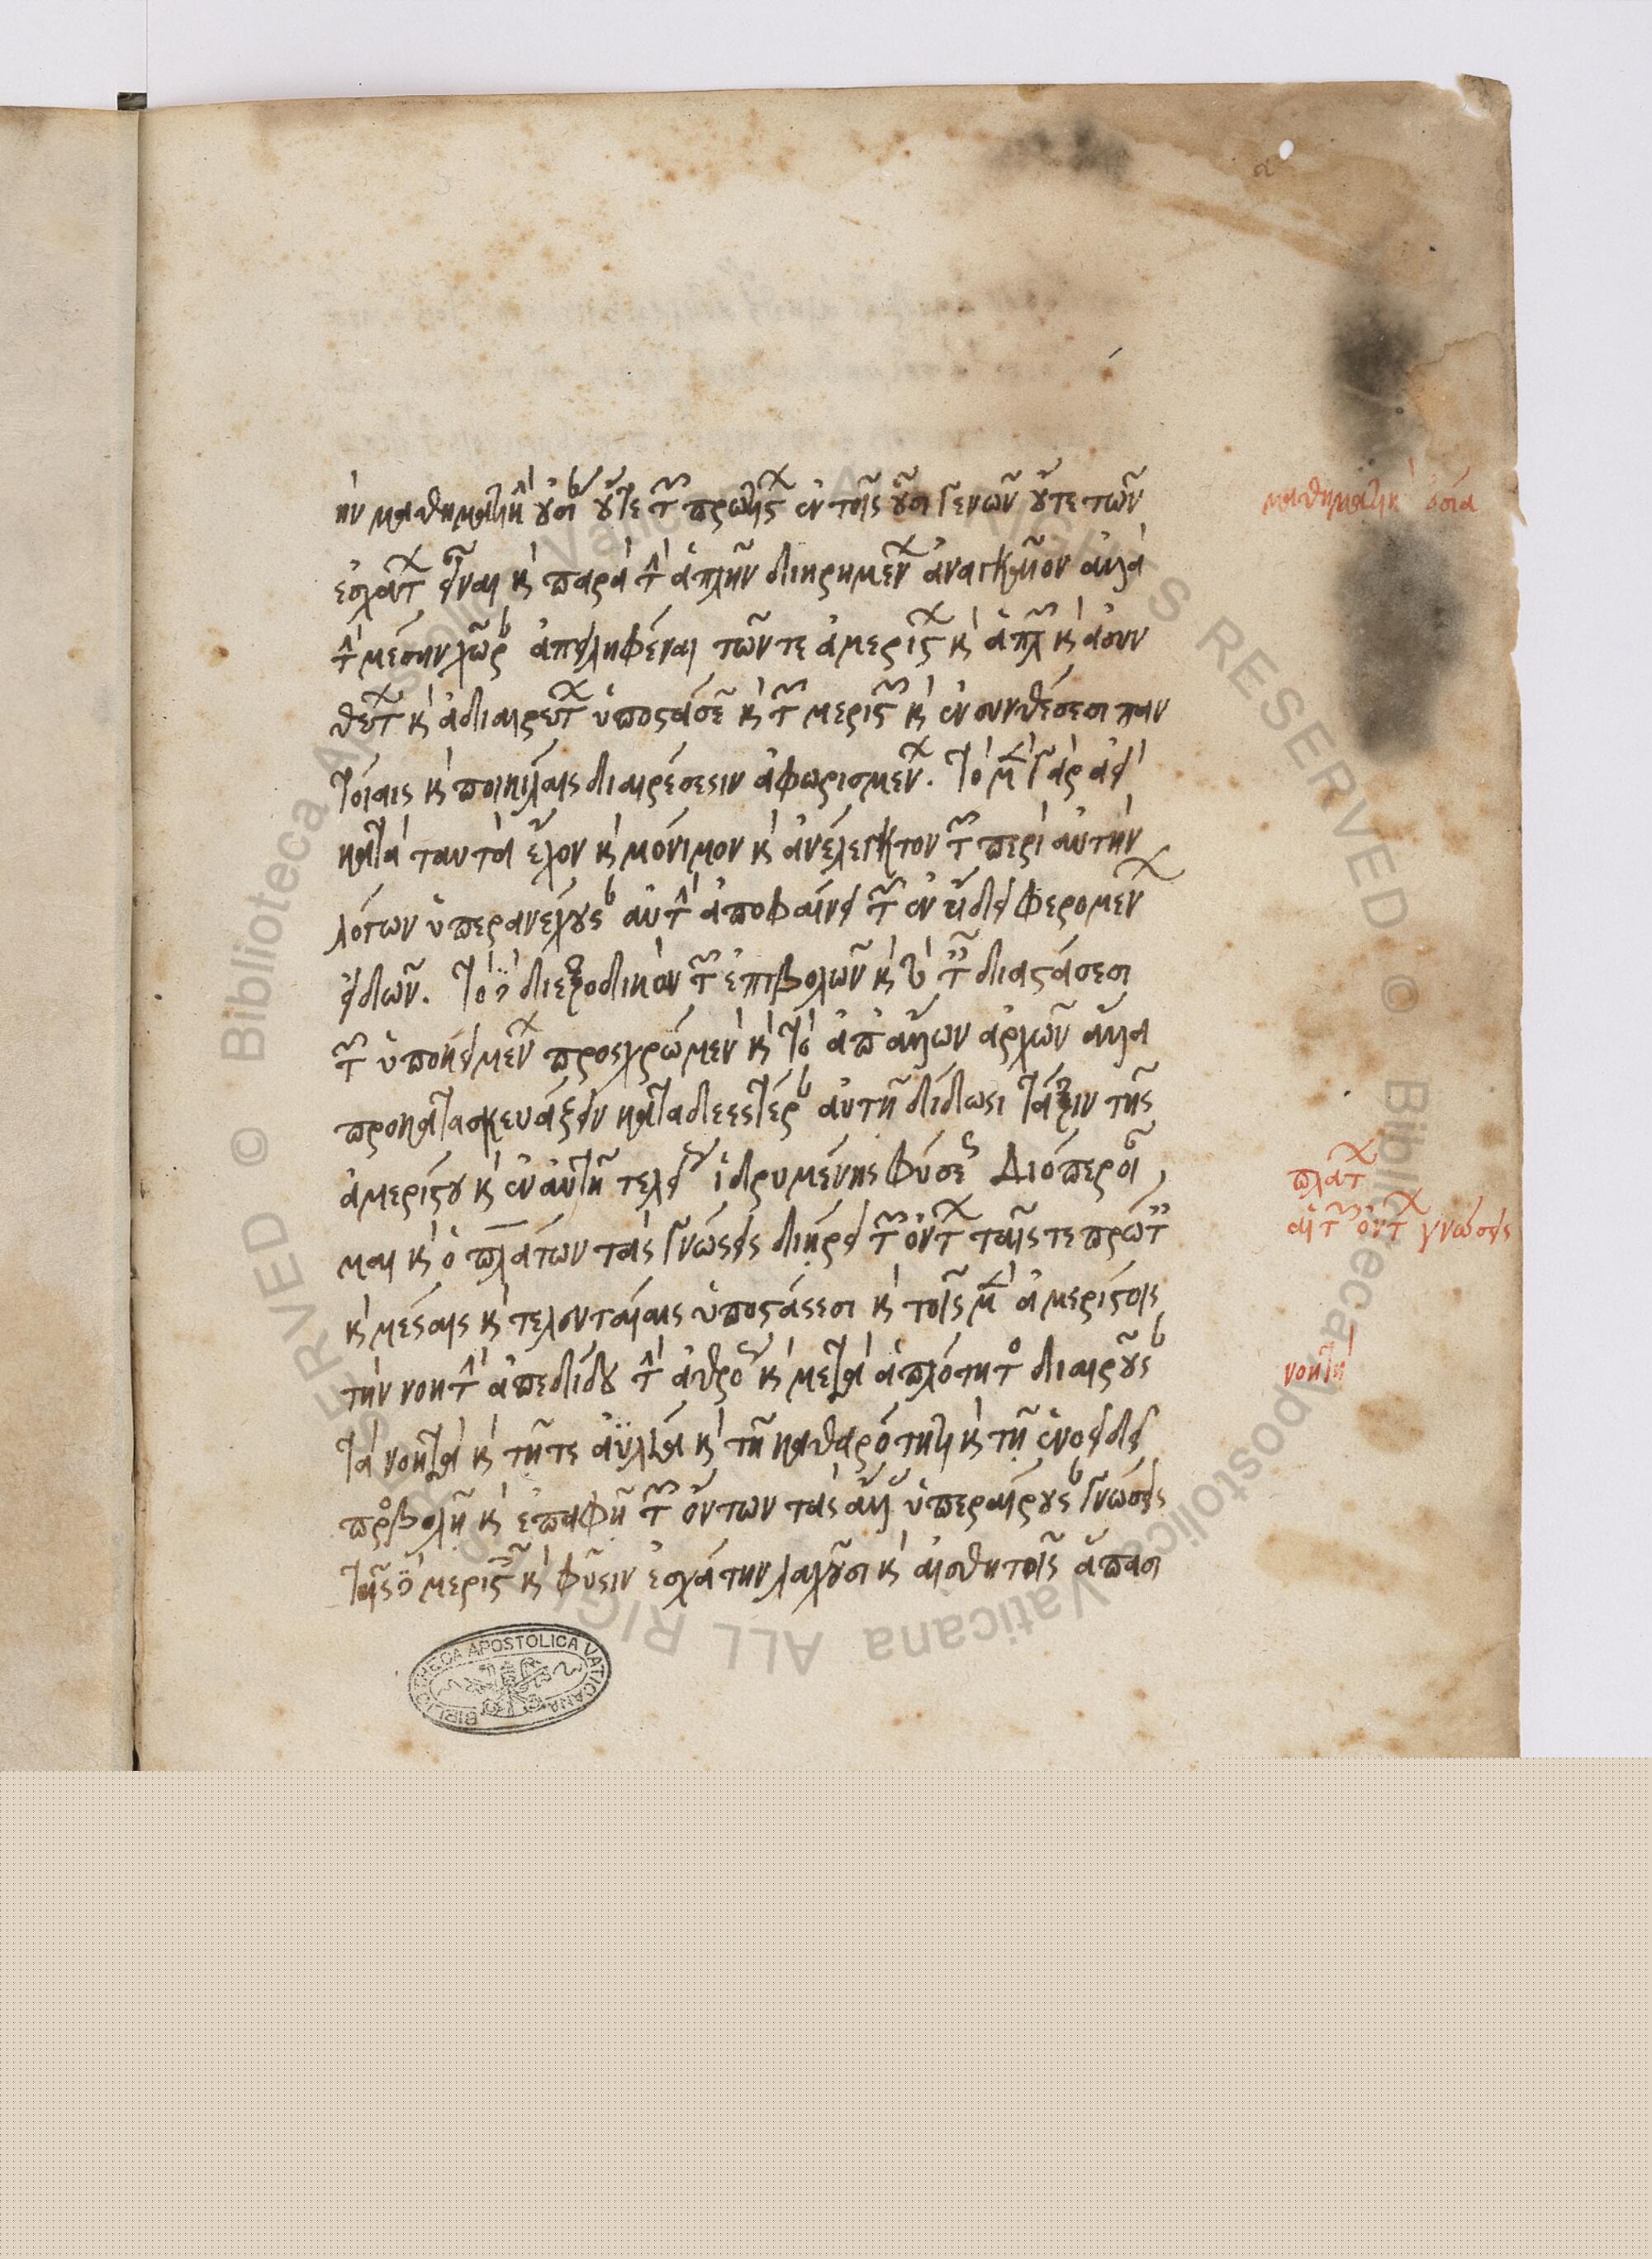 ὴν μαθηματικὴν οὐσίαν οὔτε τῶν πρωτίστων ἐν τοῖς οὖσι γενῶν οὔτε τῶν
ἐσχάτων εἶναι καὶ παρὰ τὴν ἁπλῆν διηρημένων ἀναγκαῖον ἀλλὰ
τὴν μέσην χώραν ἀπειληφέναι τῶν τε ἀμερίστων καὶ ἁπλῶν καὶ ἀσυν
θέτων καὶ ἀδιαιρέτων ὑποστάσεων καὶ τῶν μεριστῶν καὶ ἐν συνθέσεσι παν
τοίαις καὶ ποικίλαις διαιρέσεσιν ἀφωρισμένων. τὸ μὲν γὰρ ἀεὶ
κατὰ ταυτὰ ἔχον καὶ μόνιμον καὶ ἀνέλεγκτον τῶν περὶ αὐτὴν
λόγων ὑπερανέχουσαν αὐτὴν ἀποφαίνει τῶν ἐν ὕλῃ φερομένων
εἰδῶν. τὸ δὲ διεξοδικὸν τῶν ἐπιβολῶν καὶ ταῖς διαστάσεσι
τῶν ὑποκειμένων προσχρώμενον καὶ τὸ ἀπ' ἄλλων ἀρχῶν ἄλλα
προκατασκευάζειν καταδεεστέραν αὐτῇ δίδωσι τάξιν τῆς
ἀμερίστου καὶ ἐν αὑτῇ τελείως ἱδρυμένης φύσεως Διόπερ οἶ
μαι καὶ ὁ πλάτων τὰς γνώσεις διῄρει τῶν ὄντων ταῖς τε πρώταις
καὶ μέσαις καὶ τελευταίαις ὑποστάσεσι καὶ τοῖς μὲν ἀμερίστοις
τὴν νοητὴν ἀπεδίδου τὴν ἀθρόως καὶ μετὰ ἁπλότητος διαιροῦσαν
τὰ νοητὰ καὶ τῇ τε ἀϋλίᾳ καὶ τῇ καθαρότητι καὶ τῇ ἑνοειδεῖ
προσβολῇ καὶ ἐπαφῇ τῶν ὄντων τὰς ἄλλας ὑπεραίρουσαν γνώσεις
τοῖς δὲ μεριστοῖς καὶ φύσιν ἐσχάτην λαχοῦσι καὶ αἰσθητοῖς ἅπασι
μαθηματικὴ οὐσία
πλάτων
αἱ τῶν ὄντων γνώσεις
νοητὴ
BIBLIOTHECA APOSTOLICA VATICANA
© Biblioteca Apostolica Vaticana ALL RIGHTS RESERVED © Biblioteca Apostolica Vaticana ALL RIGHTS RESERVED